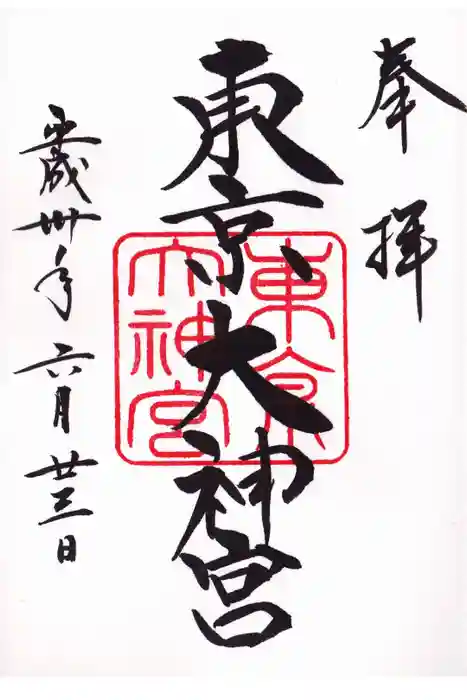 奉拝
東京大神宮
東京
大神宮
平成卅年六月廿三日